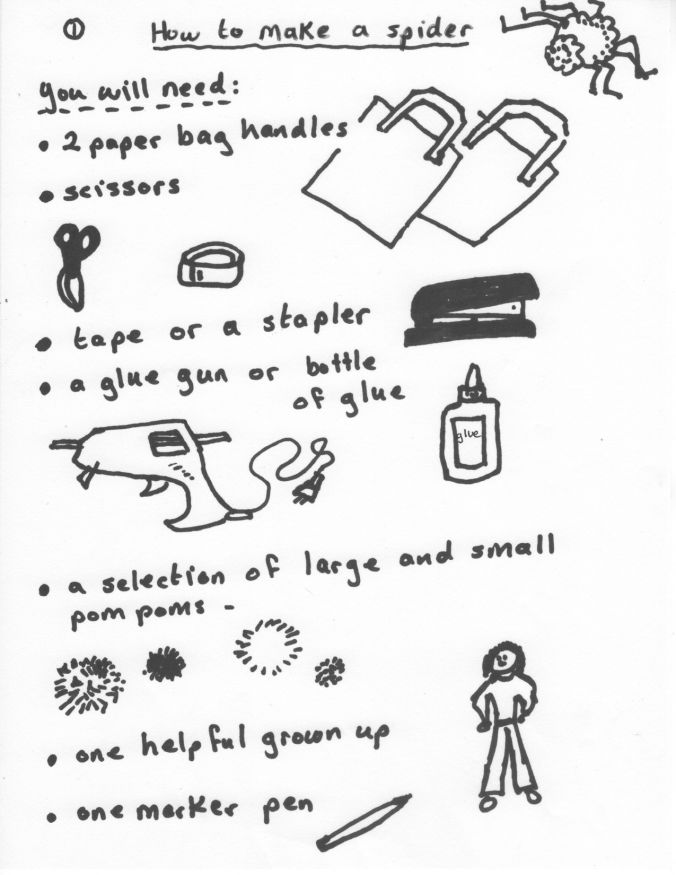 ① How to make a spider
you will need:
• 2 paper bag handles
• scissors
• tape or a stapler
• a glue gun or bottle
of glue
glue
• a selection of large and small
pom poms -
• one helpful grown up
• one marker pen